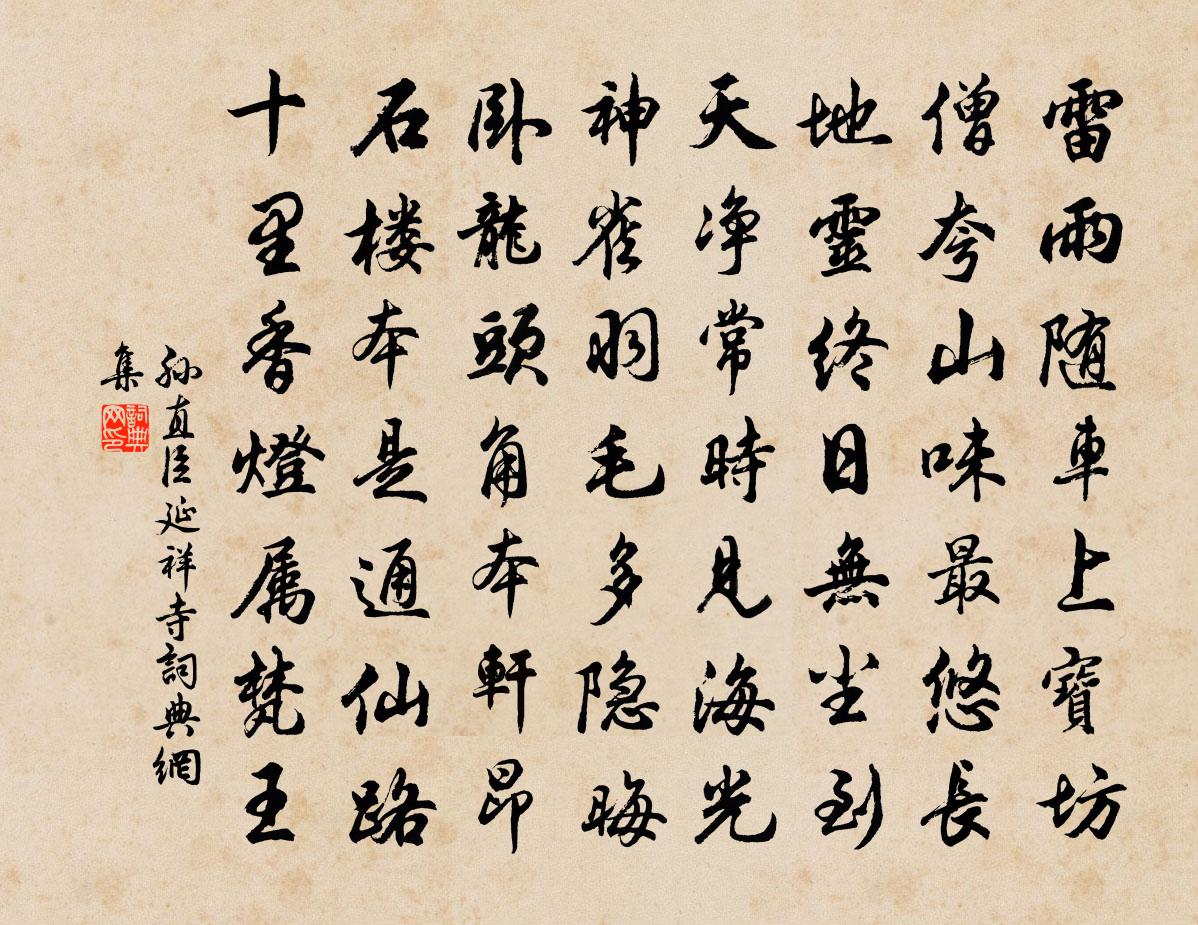 雷雨随車上寶坊
僧夸山味最悠長
地靈終日無尘到
天净常時見海光
神雀羽毛多隐晦
卧龍頭角本軒昂
石楼本是通仙路
十里香燈属梵王
孙直臣延祥寺詞典網
集
詞典网印